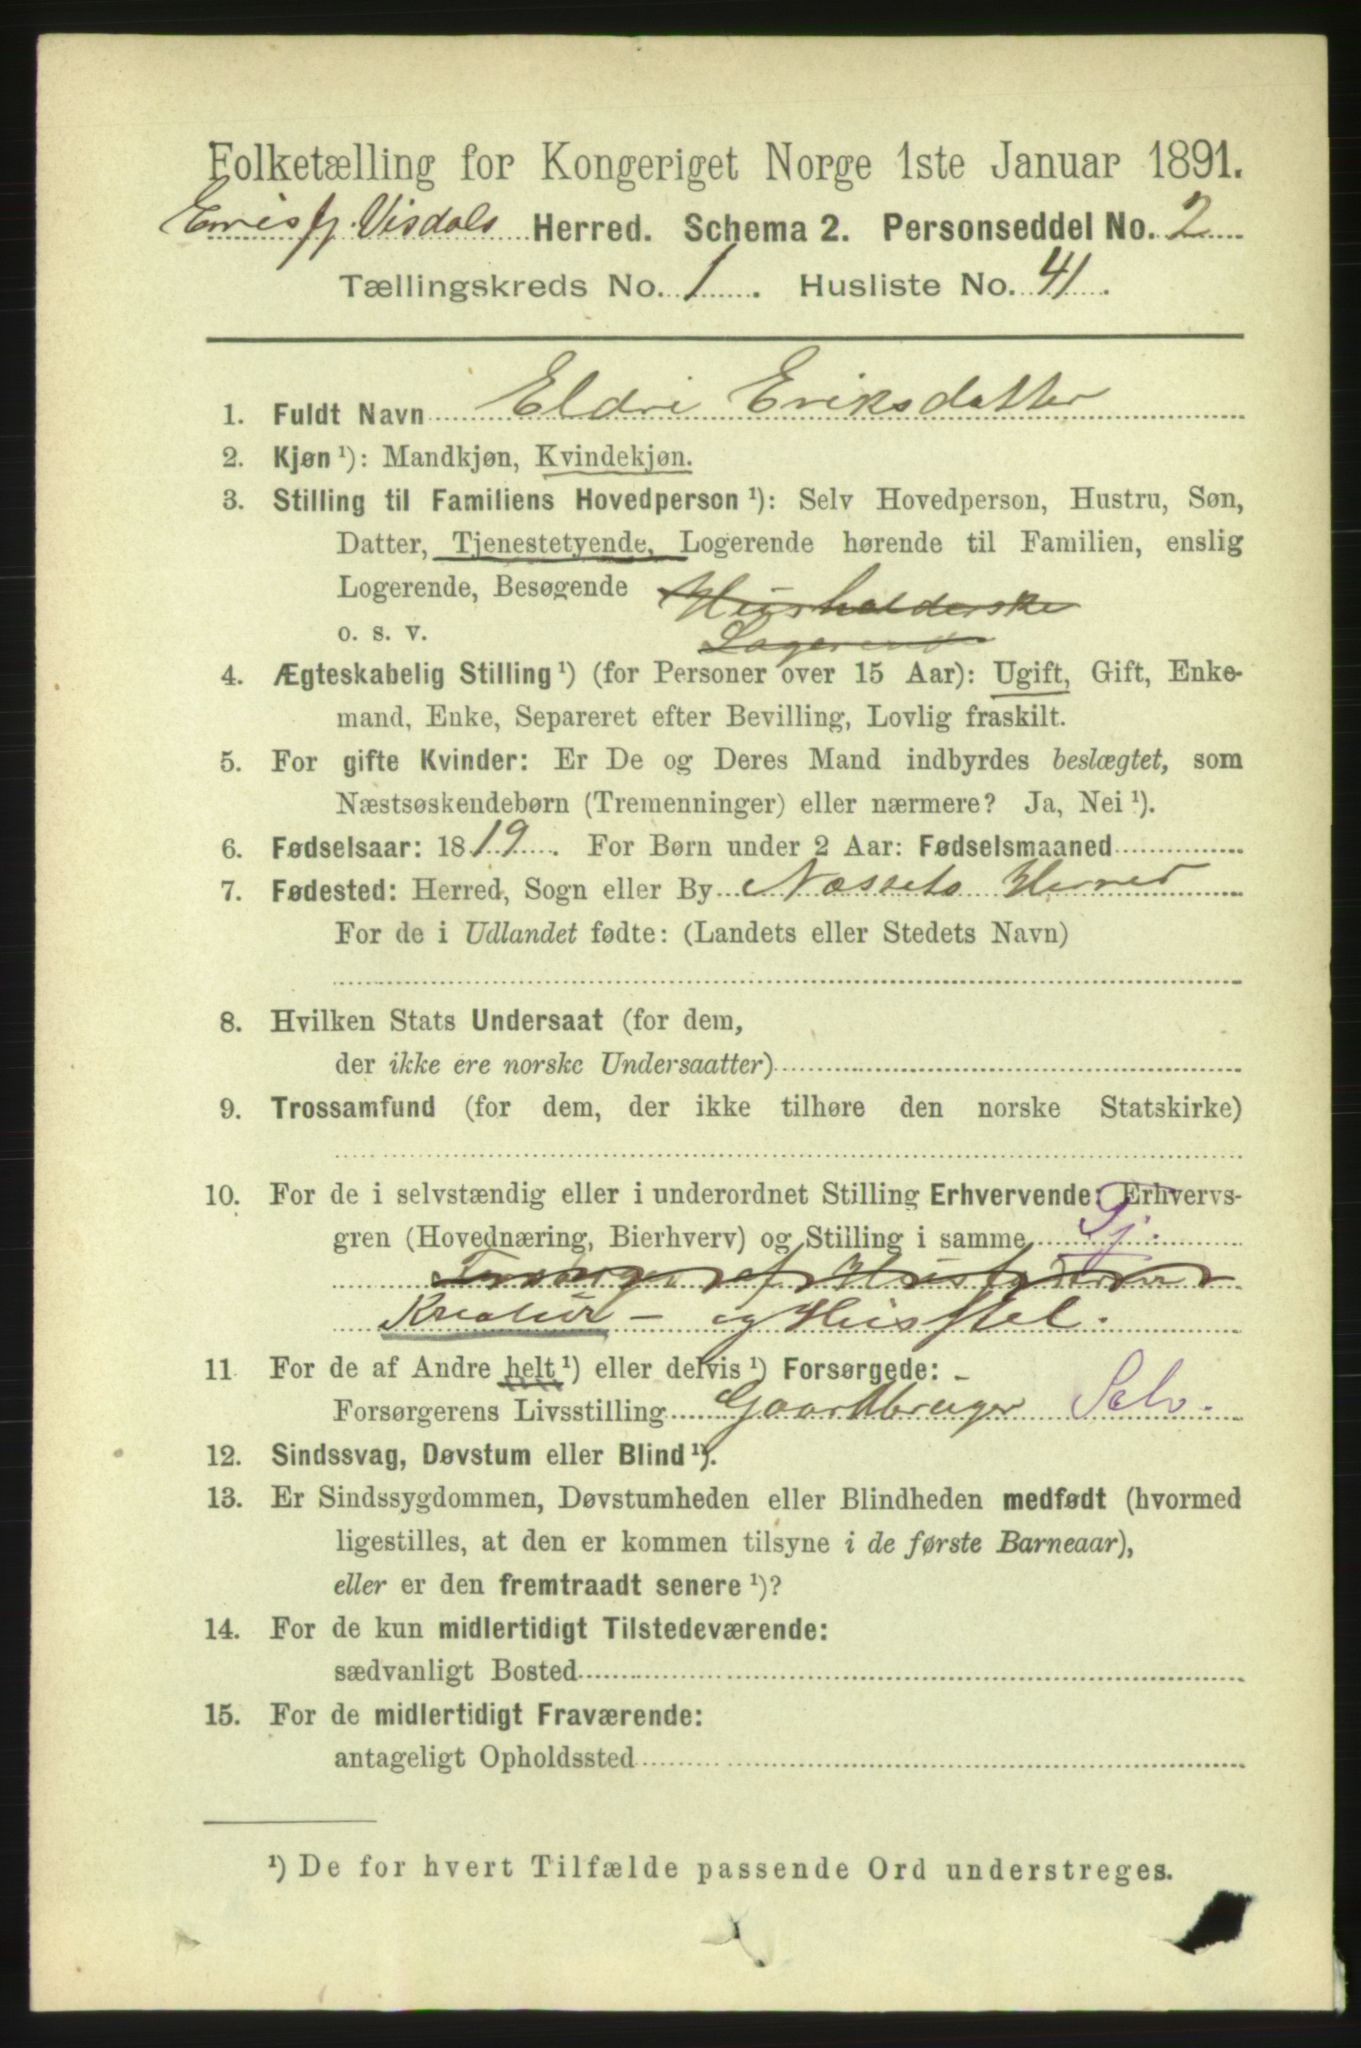 Folketælling for Kongeriget Norge 1ste Januar 1891.
Eris fj. Visdals Herred. Schema 2. Personseddel No. 2
Tællingskreds No. 1. Husliste No. 41.
1. Fuldt Navn Eldri Eriksdatter
2. Kjøn ¹): Mandkjøn, Kvindekjøn.
3. Stilling til Familiens Hovedperson ¹): Selv Hovedperson, Hustru, Søn,
Datter, Tjenestetyende, Logerende hørende til Familien, enslig
Logerende, Besøgende Husholderske
o. s. v. Logerende
4. Ægteskabelig Stilling ¹) (for Personer over 15 Aar): Ugift, Gift, Enke-
mand, Enke, Separeret efter Bevilling, Lovlig fraskilt.
5. For gifte Kvinder: Er De og Deres Mand indbyrdes beslægtet, som
Næstsøskendebørn (Tremenninger) eller nærmere? Ja, Nei ¹).
6. Fødselsaar: 1819. For Børn under 2 Aar: Fødselsmaaned
7. Fødested: Herred, Sogn eller By Næssets Herred
For de i Udlandet fødte: (Landets eller Stedets Navn)
8. Hvilken Stats Undersaat (for dem,
der ikke ere norske Undersaatter)
9. Trossamfund (for dem, der ikke tilhøre den norske Statskirke)
10. For de i selvstændig eller i underordnet Stilling Erhvervende: Erhvervs-
gren (Hovednæring, Bierhverv) og Stilling i samme Tj.
af
Kreatur- og Husstel.
11 For de af Andre helt ¹) eller delvis ¹) Forsørgede: -
Forsørgerens Livsstilling Gaardbruger Selv.
12. Sindssvag, Døvstum eller Blind ¹).
13. Er Sindssygdommen, Døvstumheden eller Blindheden medfødt (hvormed
ligestilles, at den er kommen tilsyne i de første Barneaar),
eller er den fremtraadt senere ¹)?
14. For de kun midlertidigt Tilstedeværende:
sædvanligt Bosted
15. For de midlertidigt Fraværende:
antageligt Opholdssted
¹) De for hvert Tilfælde passende Ord understreges.